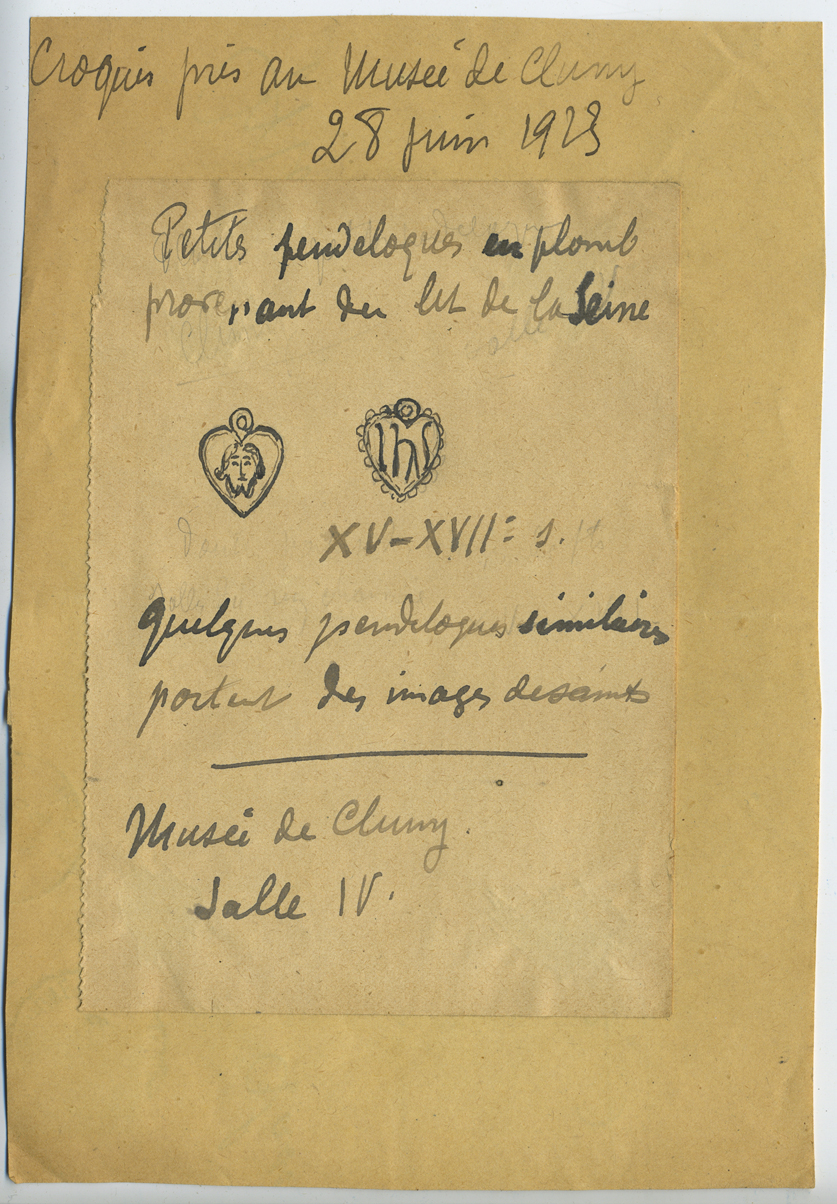 Croquis pris au Musée de Cluny
28 juin 1923
Petits pendeloques en plomb
provenant du lit de la Seine
IHS
XV-XVIIe s.
quelques pendeloques similaires
portent des images de saints
Musée de Cluny.
Salle IV.